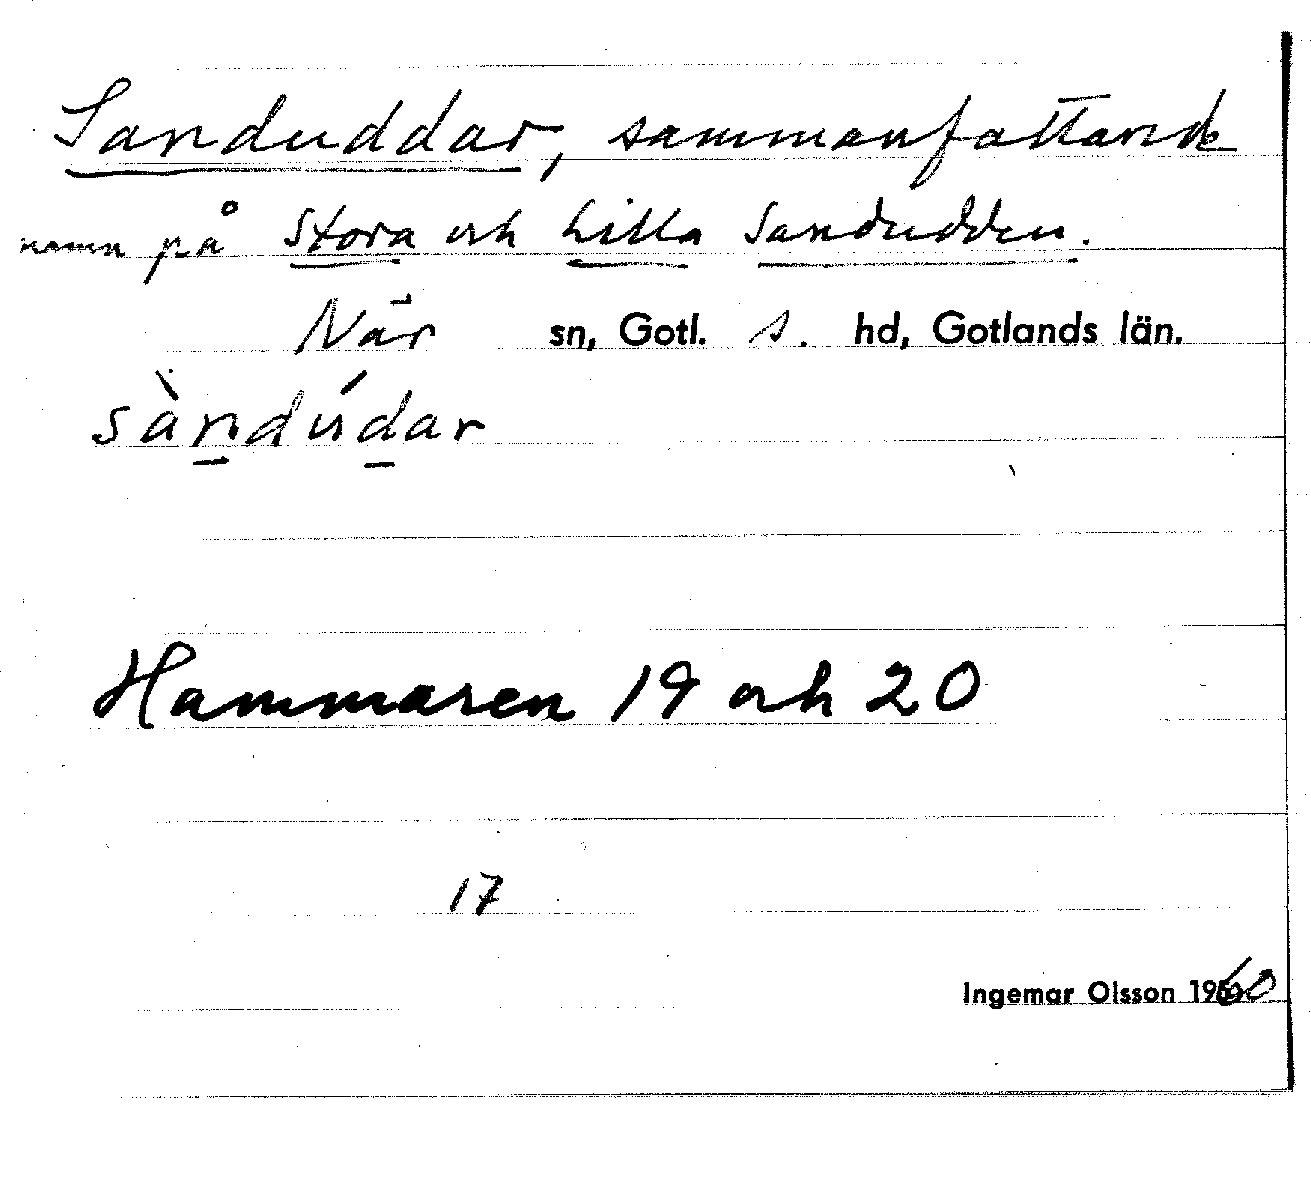 Sanduddar, sammanfattande
namn på Stora och Lilla Sandudden.
När sn, Gotl. s. hd, Gotlands län.
sàndúdar
Hammaren 19 och 20
17
Ingemar Olsson 1960